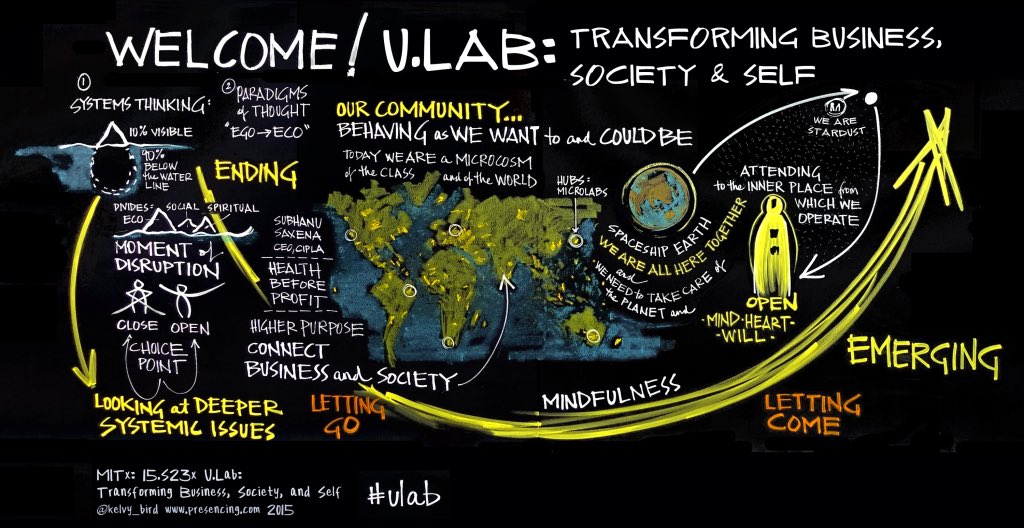 WELCOME! U.LAB: TRANSFORMING BUSINESS,
SOCIETY & SELF
① SYSTEMS THINKING:
10% VISIBLE
90%
BELOW
the WATER
LINE
② PARADIGMS
of THOUGHT
"EGO → ECO"
ENDING
DIVIDES: SOCIAL SPIRITUAL
ECO
MOMENT of
DISRUPTION
CLOSE OPEN
CHOICE
POINT
LOOKING at DEEPER
SYSTEMIC ISSUES
SUBHANU
SAXENA
CEO, CIPLA
HEALTH
BEFORE
PROFIT
HIGHER PURPOSE
CONNECT
BUSINESS and SOCIETY
OUR COMMUNITY...
BEHAVING as WE WANT to and COULD BE
TODAY WE ARE a MICROCOSM
of the CLASS and of the WORLD
HUBS:
MICROLABS
SPACESHIP EARTH
WE ARE ALL HERE TOGETHER
and
WE NEED to TAKE CARE of
the PLANET and
WE ARE
STARDUST
ATTENDING
to the INNER PLACE from
WHICH WE
OPERATE
OPEN
-MIND-HEART-
WILL-
EMERGING
LETTING
GO
MINDFULNESS
LETTING
COME
MITx: 15.S23x U.Lab:
Transforming Business, Society, and Self
@kelvy_bird www.presencing.com 2015
#ulab